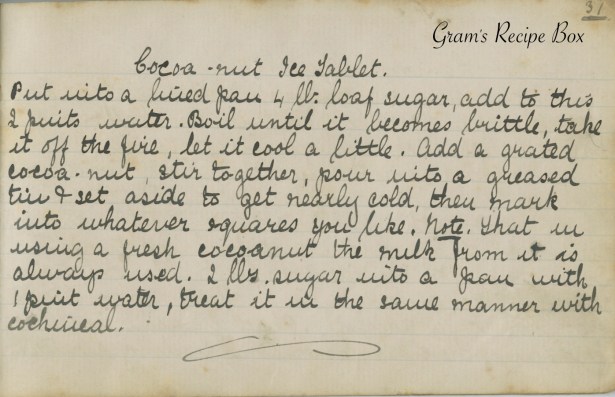 31
Gram's Recipe Box
Cocoa-nut Ice Tablet.
Put into a lined pan 4 lb. loaf sugar, add to this
2 pints water. Boil until it becomes brittle, take
it off the fire, let it cool a little. Add a grated
cocoa-nut, stir together, pour into a greased
tin & set aside to get nearly cold, then mark
into whatever squares you like. Note. That in
using a fresh cocoanut the milk from it is
always used. 2 lbs. sugar into a pan with
1 pint water, treat it in the same manner with
cochineal.